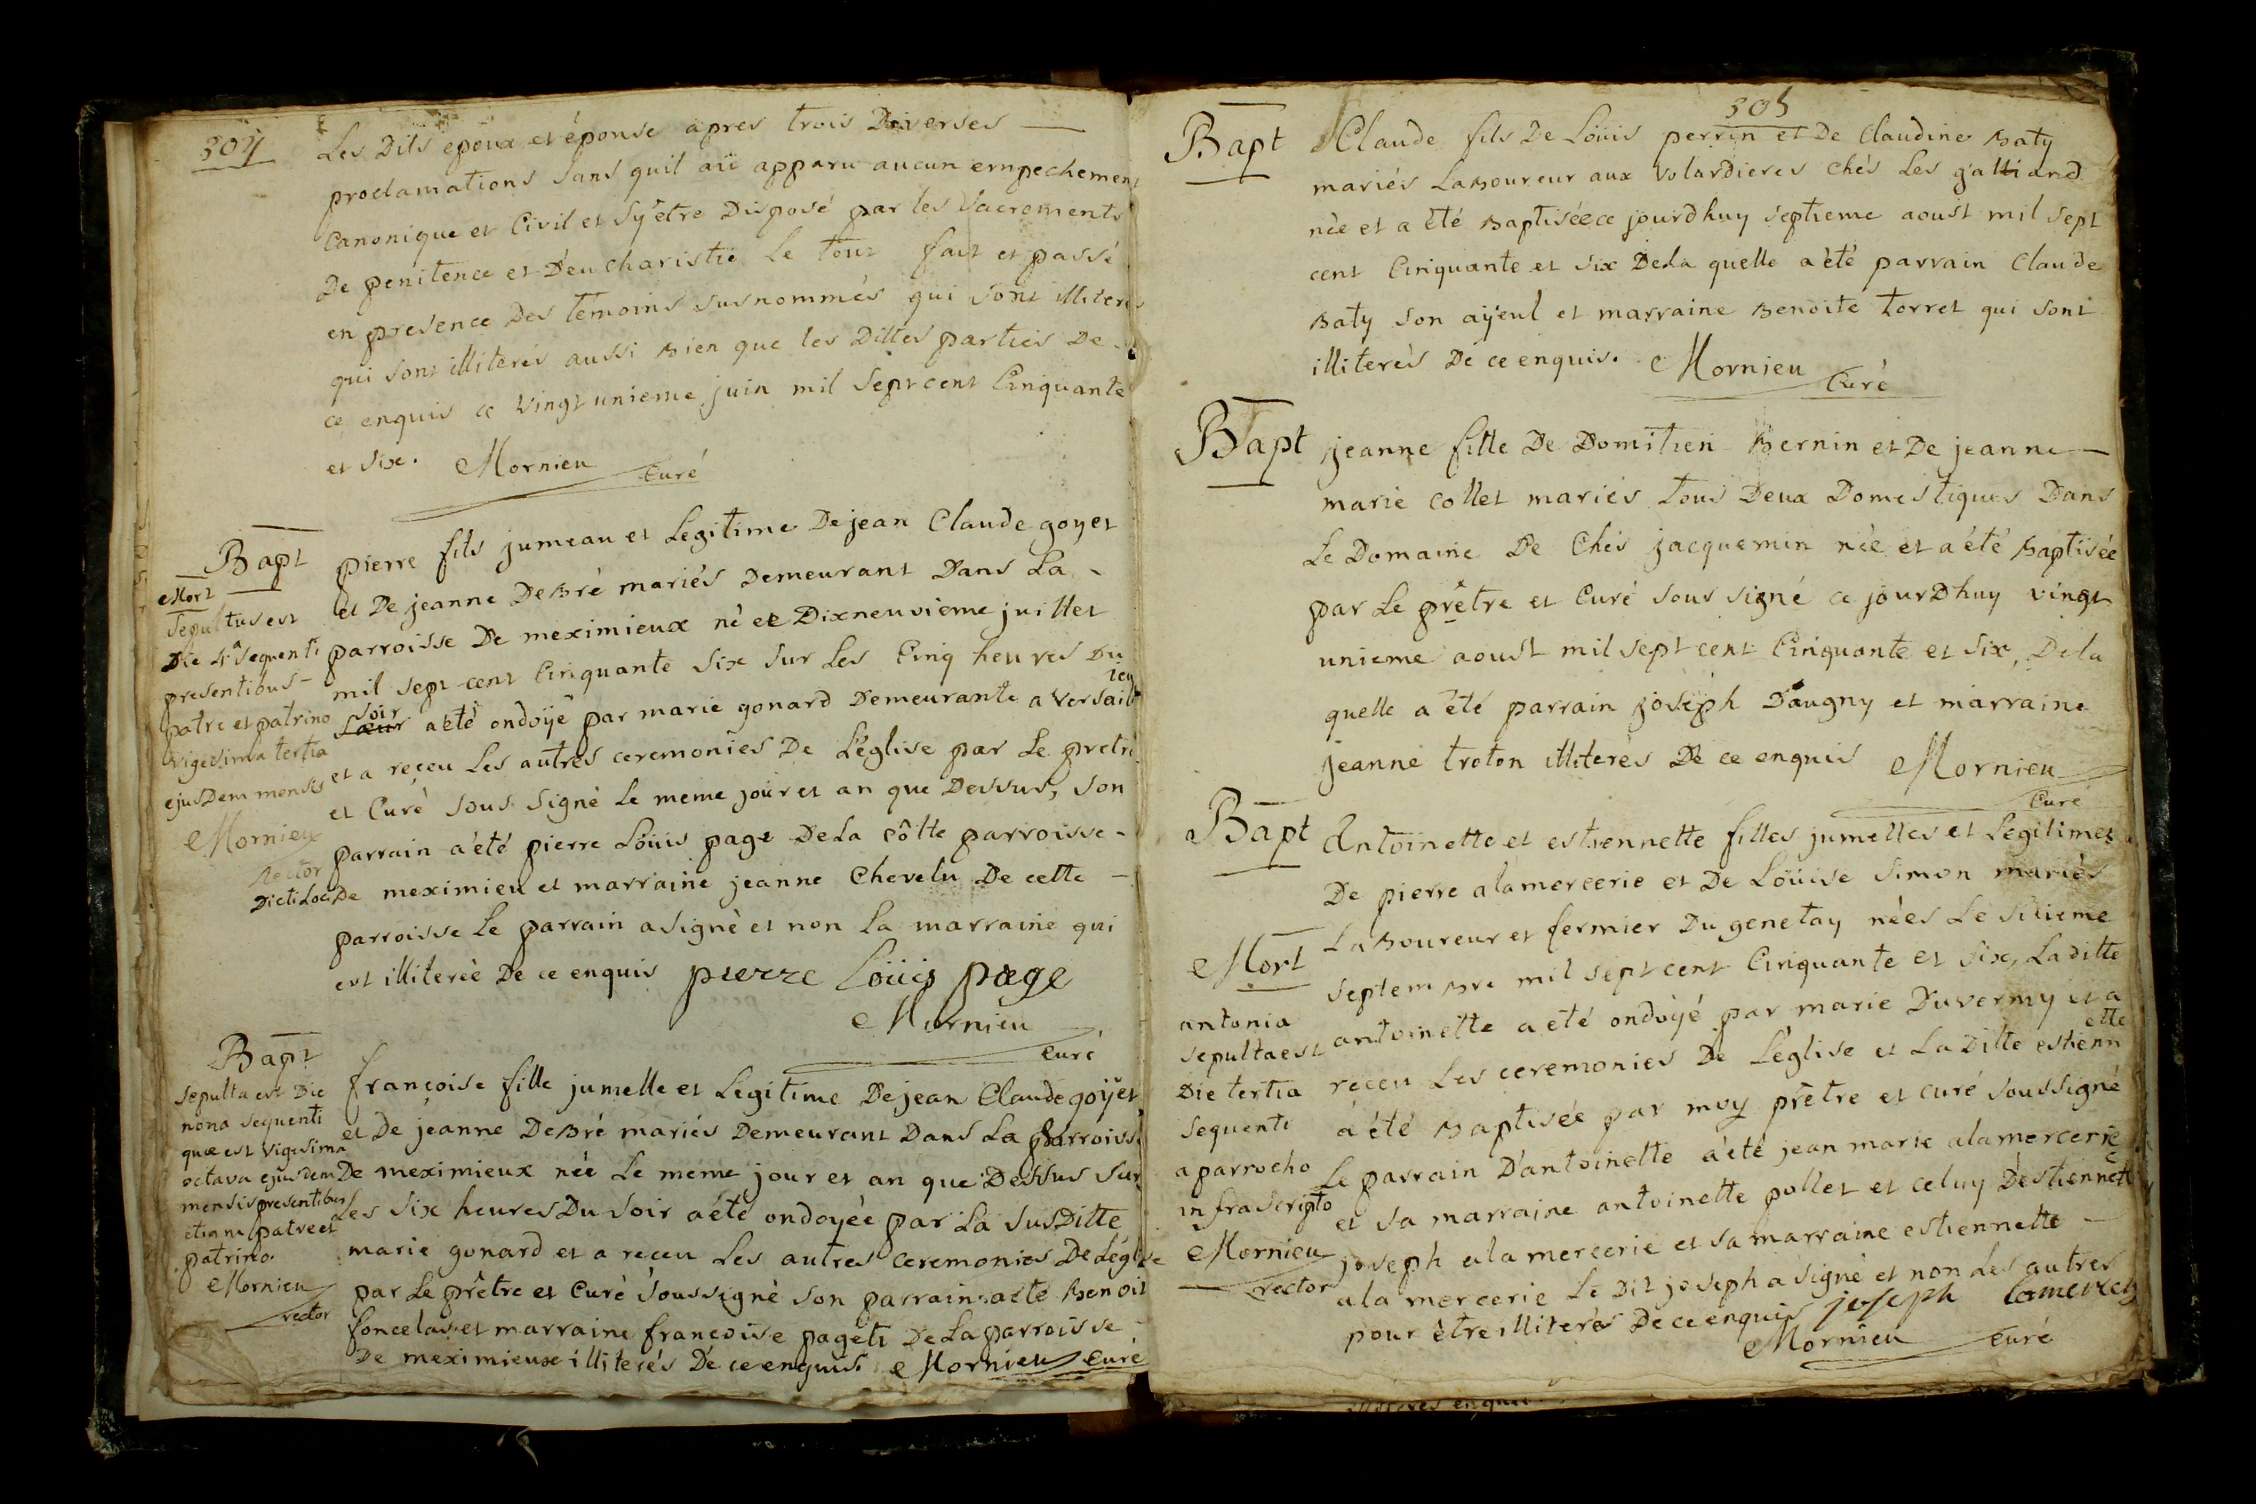 304
Les Dits epoux et épouse apres trois Diverses
proclamations sans quil aïe apparu aucun empechement
Canonique et Civil et s'y etre Disposé par les sacrements
De penitence et D'eucharistie Le tout fait et passé
en presence Des témoins susnommés qui sont illiterés
qui sont illiterés aussi Bien que les Dittes parties De
ce enquis ce vingt unieme juin mil Sept cent Cinquante
et six. Mornieu
Curé
Bapt
Mort
Sepultus est
Die 4a sequenti
presentibus
patre et patrino
vigesima tertia
ejusDem mensis
Mornieu
Rector
Dicti Loci
pierre fils jumeau et Legitime De jean Claude goyet
et De jeanne DeBré mariés Demeurant Dans La
parroisse De meximieux né ce Dixneuvieme juillet
mil sept cent Cinquante Six sur Les Cinq heures Du
soir
sœur a été ondoÿé par marie gonard Demeurante a Versailieu
et a reçeu Les autres ceremonies De L'église par Le pretre
et Curé sous signé Le meme jour et an que Dessus, son
parrain a été pierre Loüis page De La Côtte parroisse
De meximieu et marraine jeanne Chevelu De cette
parroisse Le parrain a signé et non La marraine qui
est illiterée De ce enquis pierre Loüis page
Mornieu
Curé
Bapt
Sepulta est Die
nona sequenti
quæ est vigesima
octava ejusdem
mensis presentibus
etiam patre et
patrino.
Mornieu
rector
françoise fille jumelle et Legitime De jean Claude goÿet
et De jeanne DeBré mariés Demeurant Dans La parroisse
De meximieux née Le meme jour et an que Dessus sur
Les Six heures Du soir a été ondoyée par La susDitte
marie gonard et a receu Les autres ceremonies De L'église
par Le prêtre et Curé soussigné son parrain a eté Benoit
foncelas et marraine françoise pageti De La parroisse
De meximieux illiterés De ce enquis. Mornieu Curé
305
Bapt
Claude fils De Loüis perrin et De Claudine Baty
mariés LaBoureur aux volardieres chés Les galliand
née et a été Baptisée ce jourdhuy septieme aoust mil sept
cent Cinquante et six De La quelle a été parrain Claude
Baty son aÿeul et marraine Benoite torret qui sont
illiterés De ce enquis. Mornieu
Curé
Bapt
jeanne fille De Domitien Bernin et De jeanne
marie collet mariés tous Deux Domestiques Dans
Le Domaine De Chés jacquemin née et a été Baptisée
par Le prêtre et Curé sous signé ce jourDhuy vingt
unieme aoust mil sept cent Cinquante et six, De la
quelle a été parrain joseph Daugny et marraine
jeanne troton illiterés De ce enquis Mornieu
Curé
Bapt
Antoinette et estiennette filles jumelles et Legitimes
De pierre alamercerie et De Loüise Simon mariés
LaBoureur et fermier Du genetay nées Le sixieme
septemBre mil sept cent Cinquante et six, Laditte
antoinette a eté ondoÿé par marie Duvermy et a
receu Les ceremonies De L'église et La Ditte estiennette
a été Baptisée par moy prêtre et curé soussigné
Le parrain D'antoinette a été jean marie alamercerie
et sa marraine antoinette pollet et celuy D'estiennette
joseph alamercerie et sa marraine estiennette
alamercerie Le Dit joseph a signé et non Les autres
pour être illiterés De ce enquis joseph
Mornieu Curé
Mort
antonia
sepulta est
Die tertia
sequenti
a parrocho
infrascripto
Mornieu
rector